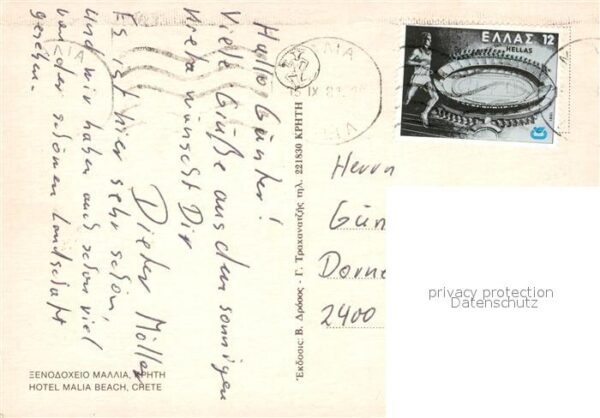 Hallo Günter!
Viele Grüße aus dem sonnigen
Kreta wünscht Dir
Dieter Möller
Es ist hier sehr schön
und wir haben auch schon viel
von der schönen Landschaft
gesehen.
ΞΕΝΟΔΟΧΕΙΟ ΜΑΛΛΙΑ, ΚΡΗΤΗ
HOTEL MALIA BEACH, CRETE
Έκδοσις: Β. Δρόσος - Γ. Τρακανατζής τηλ. 221830 ΚΡΗΤΗ
ΕΛΛΑΣ 12
HELLAS
ΛΙΑ
15 IX 81
Herrn
Gün
Dorne
2400
privacy protection
Datenschutz